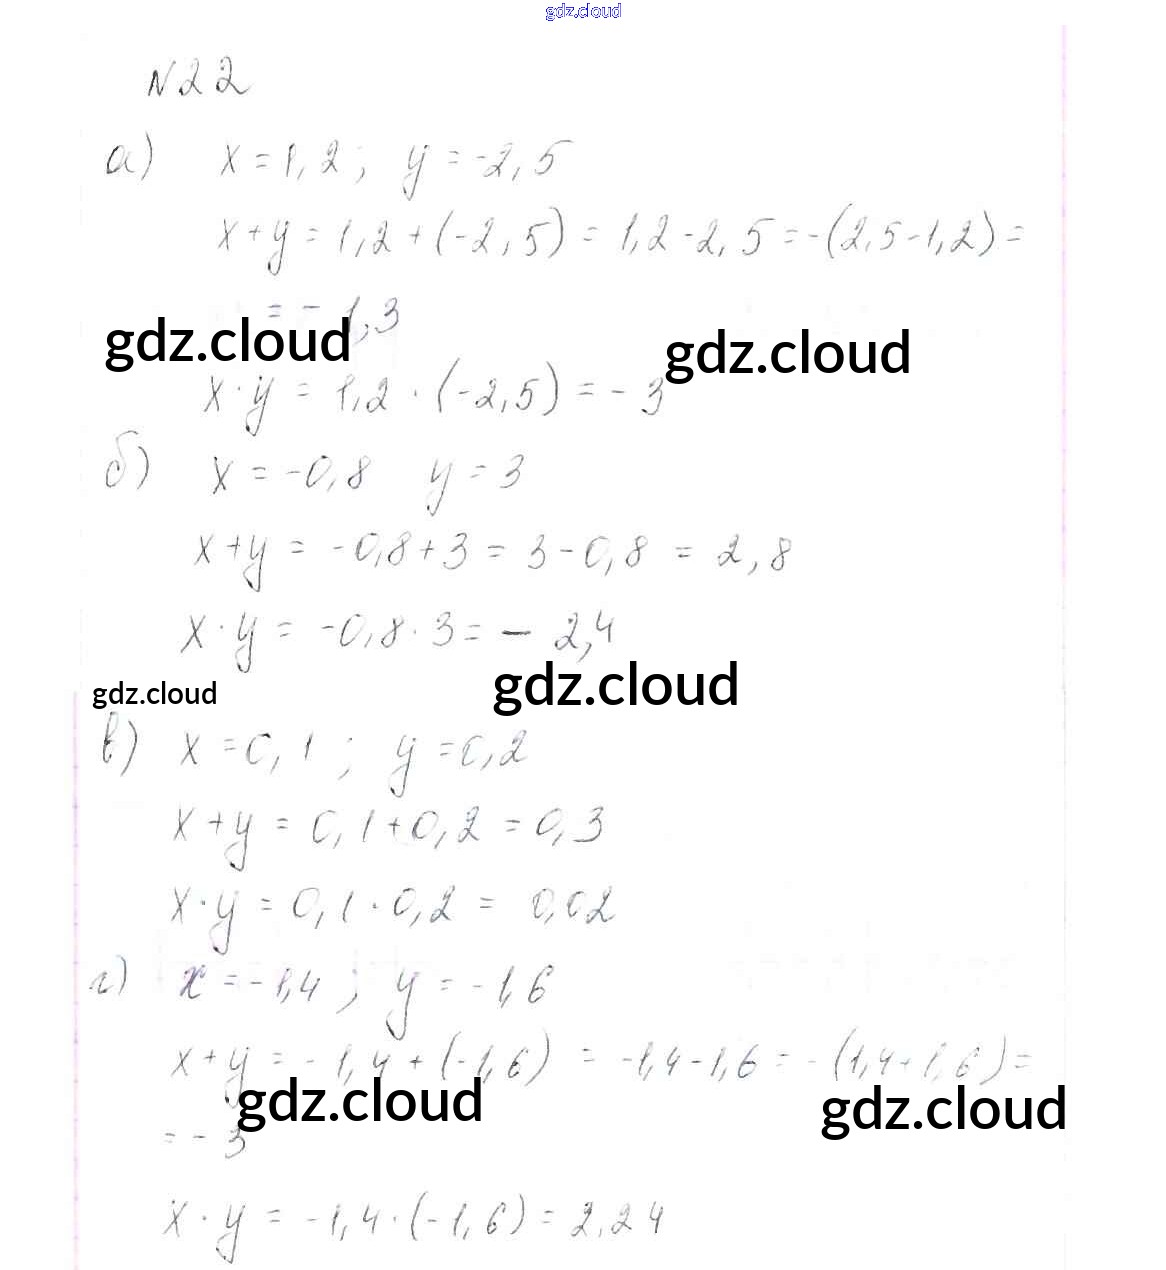 gdz.cloud
N22
а) x = 1,2 ; y = -2,5
x + y = 1,2 + (-2,5) = 1,2 - 2,5 = -(2,5-1,2) =
= - 1,3
gdz.cloud gdz.cloud
x · y = 1,2 · (-2,5) = - 3
б) x = -0,8 y = 3
x + y = -0,8 + 3 = 3 - 0,8 = 2,8
x · y = -0,8 · 3 = - 2,4
gdz.cloud gdz.cloud
в) x = 0,1 ; y = 0,2
x + y = 0,1 + 0,2 = 0,3
x · y = 0,1 · 0,2 = 0,02
г) x = -1,4 ; y = -1,6
x + y = - 1,4 + (-1,6) = -1,4 - 1,6 = -(1,4 + 1,6) =
gdz.cloud gdz.cloud
= - 3
x · y = -1,4 · (-1,6) = 2,24